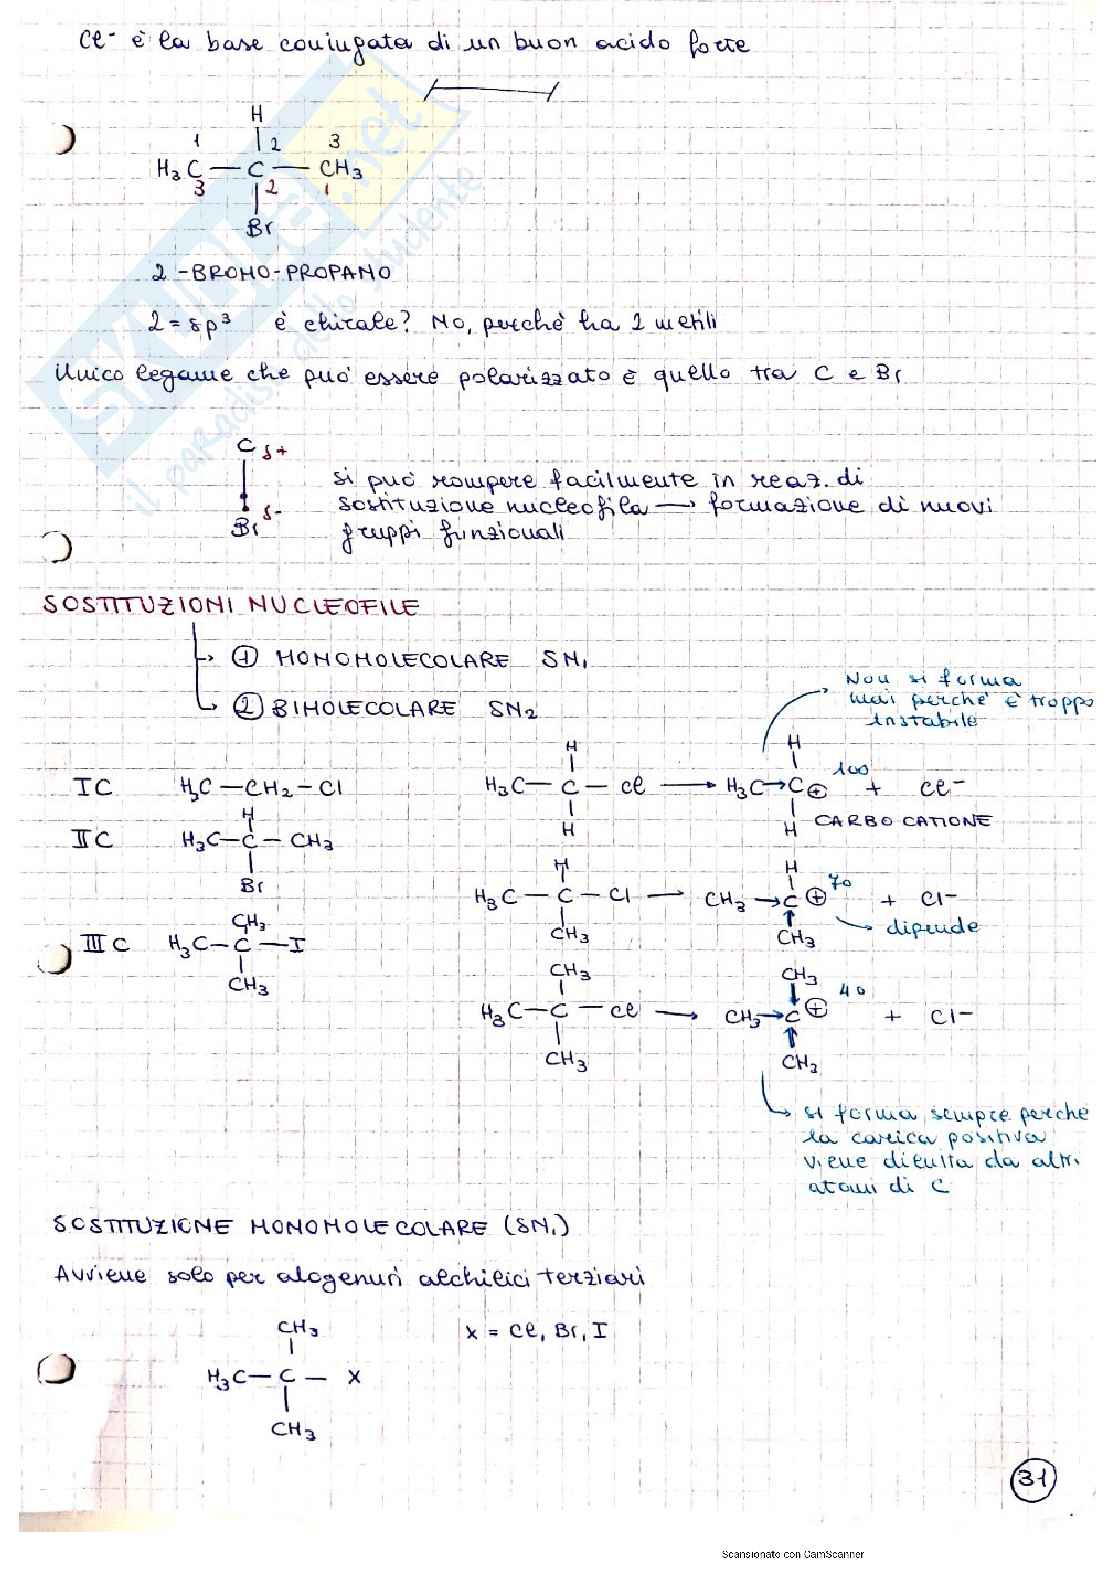 Cl⁻ è la base coniugata di un buon acido forte
H
1 2 3
H₃C — C — CH₃
3 2 1
Br
2-BROMO-PROPANO
2 = sp³ è chirale? No, perchè ha 2 metili
Unico legame che può essere polarizzato è quello tra C e Br
C δ+
si può rompere facilmente in reaz. di
sostituzione nucleofila → formazione di nuovi
Br δ-
gruppi funzionali
SOSTITUZIONI NUCLEOFILE
① MONOMOLECOLARE SN₁
② BIMOLECOLARE SN₂
Non si forma
mai perchè è troppo
instabile
IC H₃C — CH₂ — Cl
H
H₃C — C — Cl → H₃C → C ⊕ + Cl⁻
H
H
100
H
CARBOCATIONE
IIC
H
H₃C — C — CH₃
Br
H
H₃C — C — Cl → CH₃ → C ⊕ + Cl⁻
CH₃
H
70
CH₃
dipende
IIIC
CH₃
H₃C — C — I
CH₃
CH₃
H₃C — C — Cl → CH₃ → C ⊕ + Cl⁻
CH₃
CH₃
40
CH₃
si forma sempre perchè
la carica positiva
viene diluita da altri
atomi di C
SOSTITUZIONE MONOMOLECOLARE (SN₁)
Avviene solo per alogenuri alchilici terziari
CH₃
x = Cl, Br, I
H₃C — C — X
CH₃
31
Scansionato con CamScanner
SKUOLA.net
il paradiso dello studente